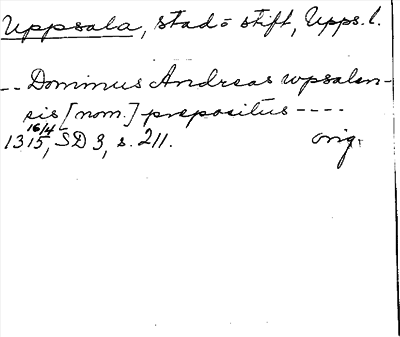 Uppsala, stad = stift, Upps. l.
-- Dominus Andreas vpsalen-
sis [nom.] prepositus ----
1315 16/4, SD 3, s. 211. orig.